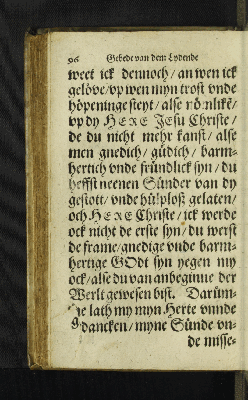 96 Gebedt van dem Lydende
weet ick dennoch / an wen ick
gelöve / vp wen myn trost vnde
höpeninge steyt / alse nömlikē /
vp dy HERE JEsu Christe /
de du nicht mehr kanst / alse
men gnedich / güdich / barm-
hertich vnde fründlick syn / du
heffst neenen Sünder van dy
gestott / vnde hülploß gelaten /
och HERE Christe / ick werde
ock nicht de erste syn / du werst
de frame / gnedige vnde barm-
hertige GOdt syn yegen my
ock / alse du van anbeginne der
Werlt gewesen bist. Darüm-
me lath my myn Herte vnde
gdancken / myne Sünde vn-
de misse-